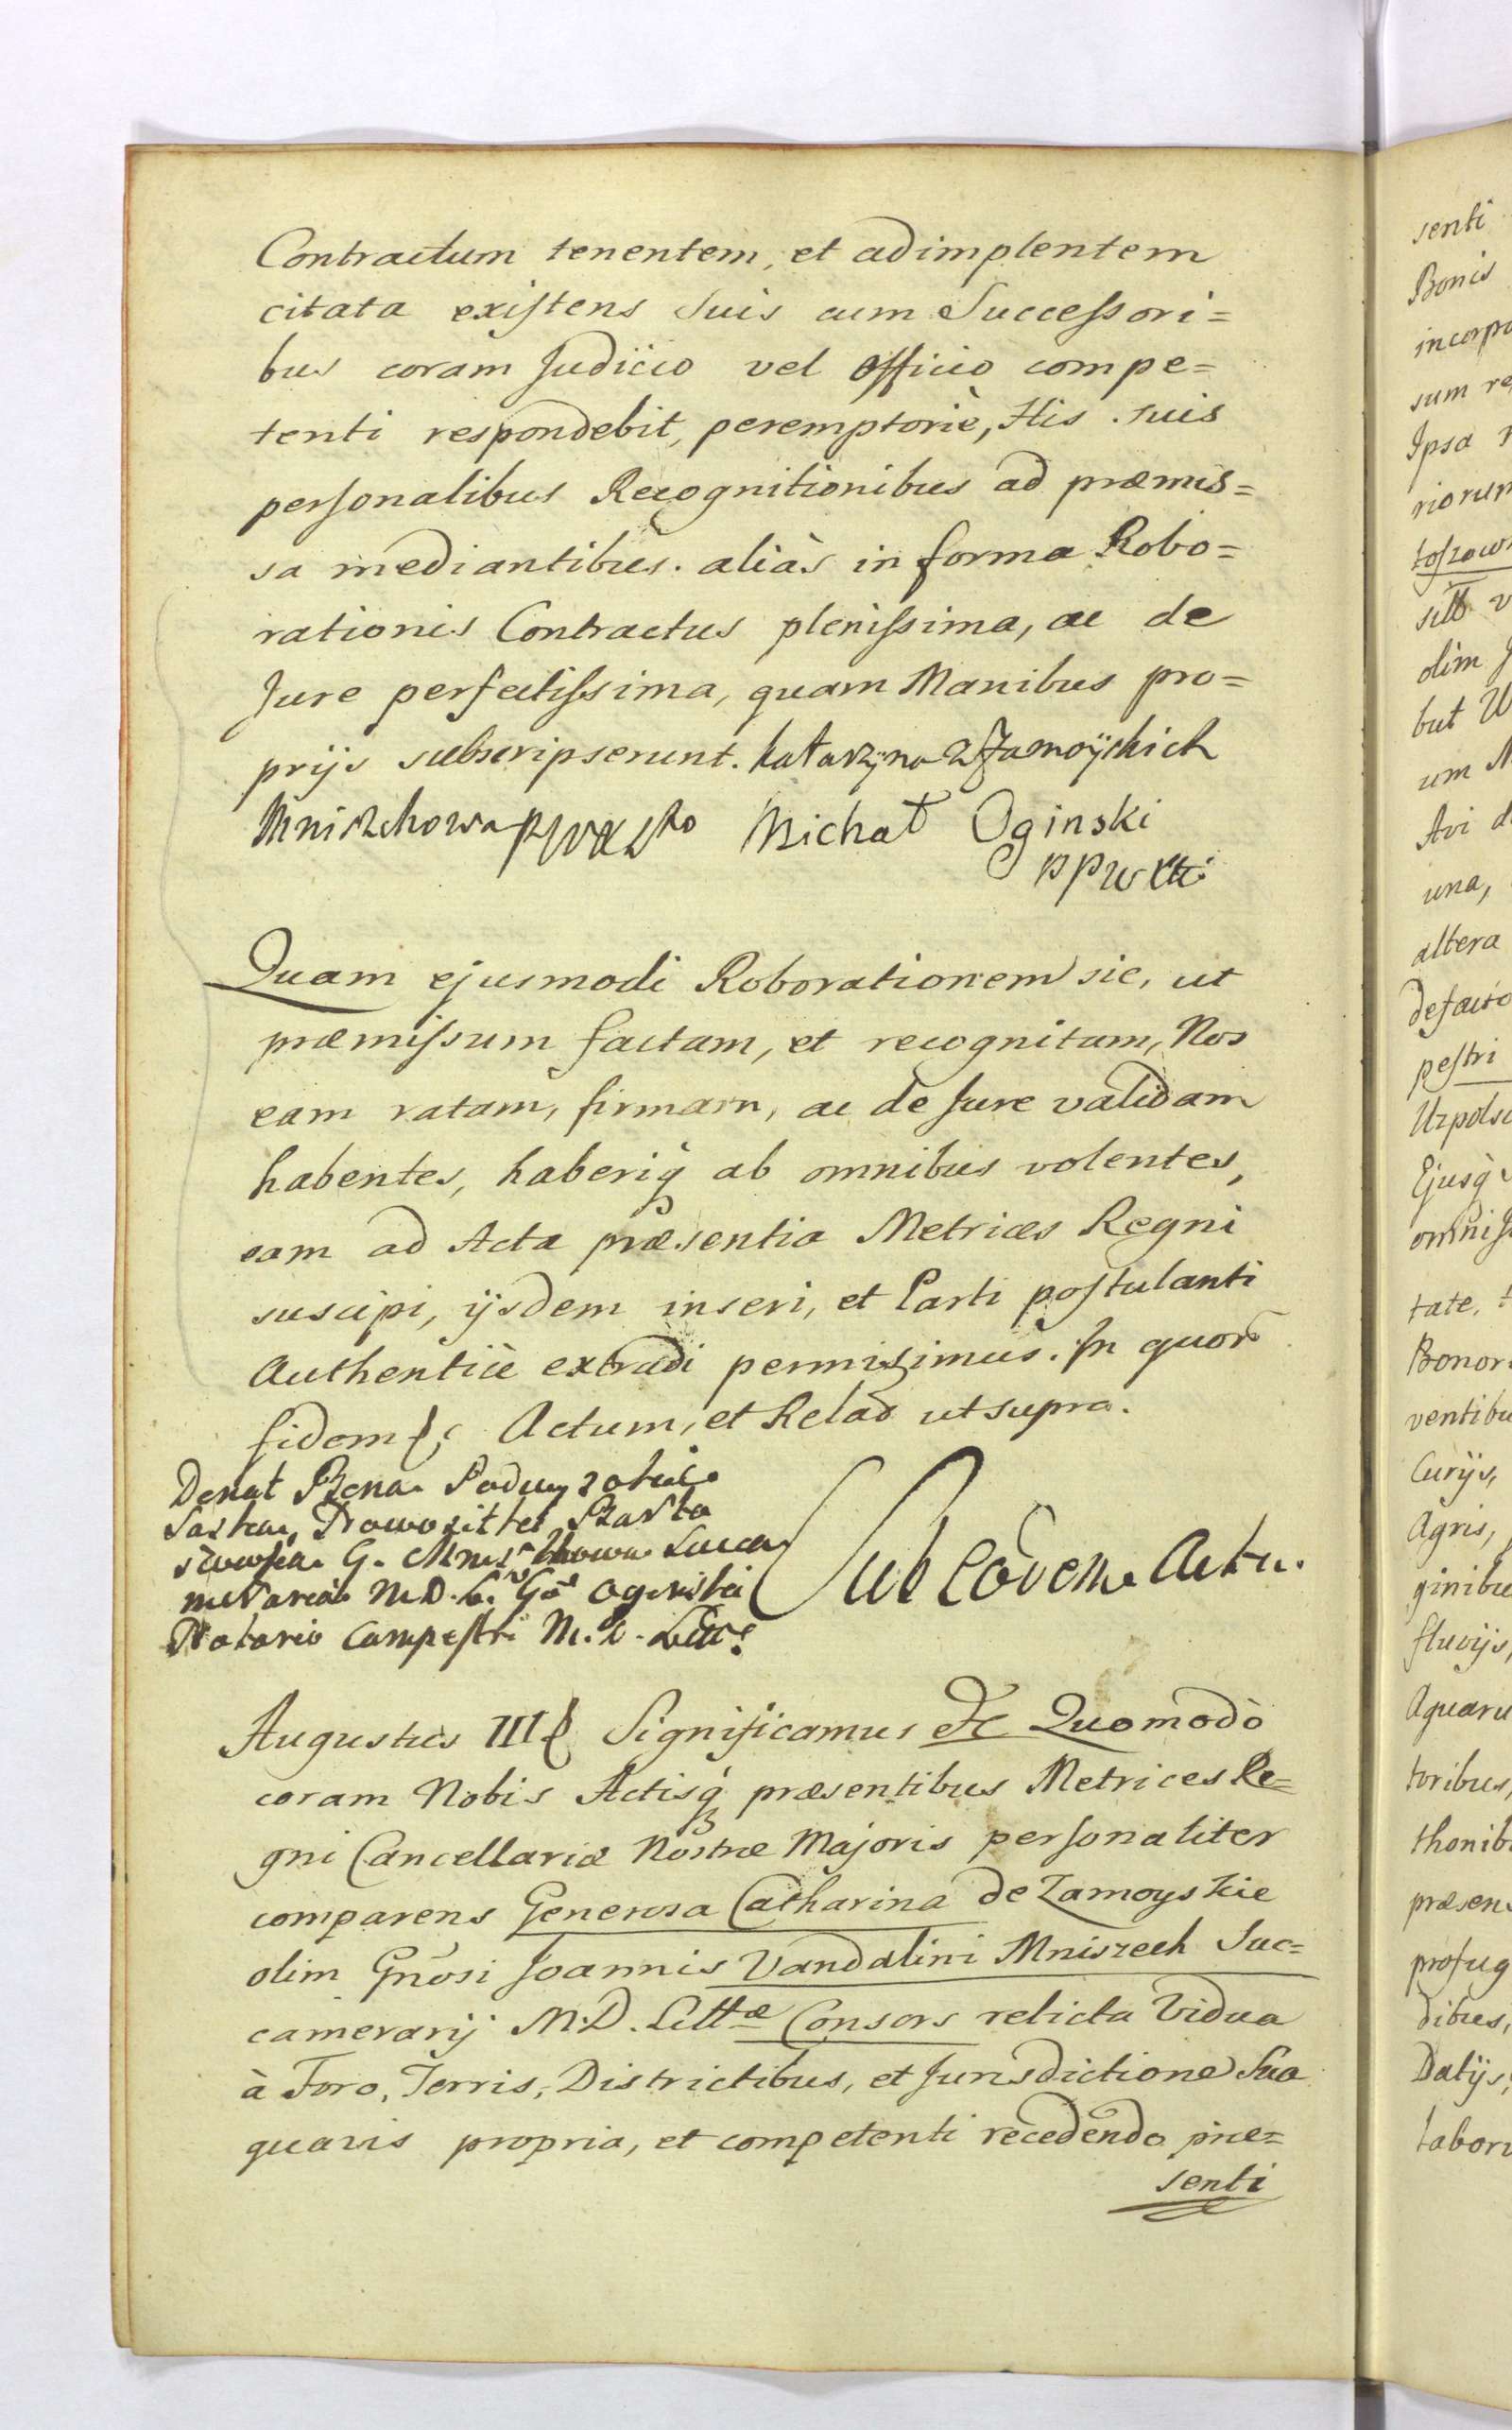 Contractum tenentem, et adimplentem
citata existens suis cum Successori=
bus coram Judicio vel Officio compe=
tenti respondebit, peremptoriè, His suis
personalibus Recognitionibus ad præmis=
sa mediantibus. aliàs in forma Robo=
rationis Contractus plenissima, ac de
Jure perfectissima, quam Manibus pro=
prijs subscripserunt. Katarzyna z Zamoyskich
Mniszchowa Michał Oginski
Quam ejusmodi Roborationem sic, ut
præmissum factam, et recognitam, Nos
eam ratam, firmam, ac de Jure validam
habentes, haberiq; ab omnibus volentes,
eam ad Acta præsentia Metrices Regni
suscipi, ijsdem inseri, et Parti postulanti
Authenticè extradi permisimus. In quor
fidem &c Actum, et Relaō ut supra.
Donat Bona
G. Mniszchowa Succa
meraria M.D.L. Gso Oginski
Notario Campestri M.D. Litt.
Sub eodem Actu.
Augustus III& Significamus &c Quomodò
coram Nobis Actisq; præsentibus Metrices Re=
gni Cancellariæ Nostræ Majoris personaliter
comparens Generosa Catharina de Zamoyskie
olim Gnōsi Joannis Vandalini Mniszech Suc=
camerarij M.D. Littæ Consors relicta Vidua
à Foro, Terris, Districtibus, et Jurisdictione Sua
quavis propria, et competenti recedendo præ=
senti
senti
Bonis
incorpo
sum re
Ipsa
riorum
olim
but
um
Avi
una,
altera
defacto
pestri
Ejusq;
tate,
Bonor
ventibu
Curijs,
Agris,
ginibu
fluvijs,
Aquaru
toribus,
thonib
præsen
profug
dibus,
Datijs,
labor